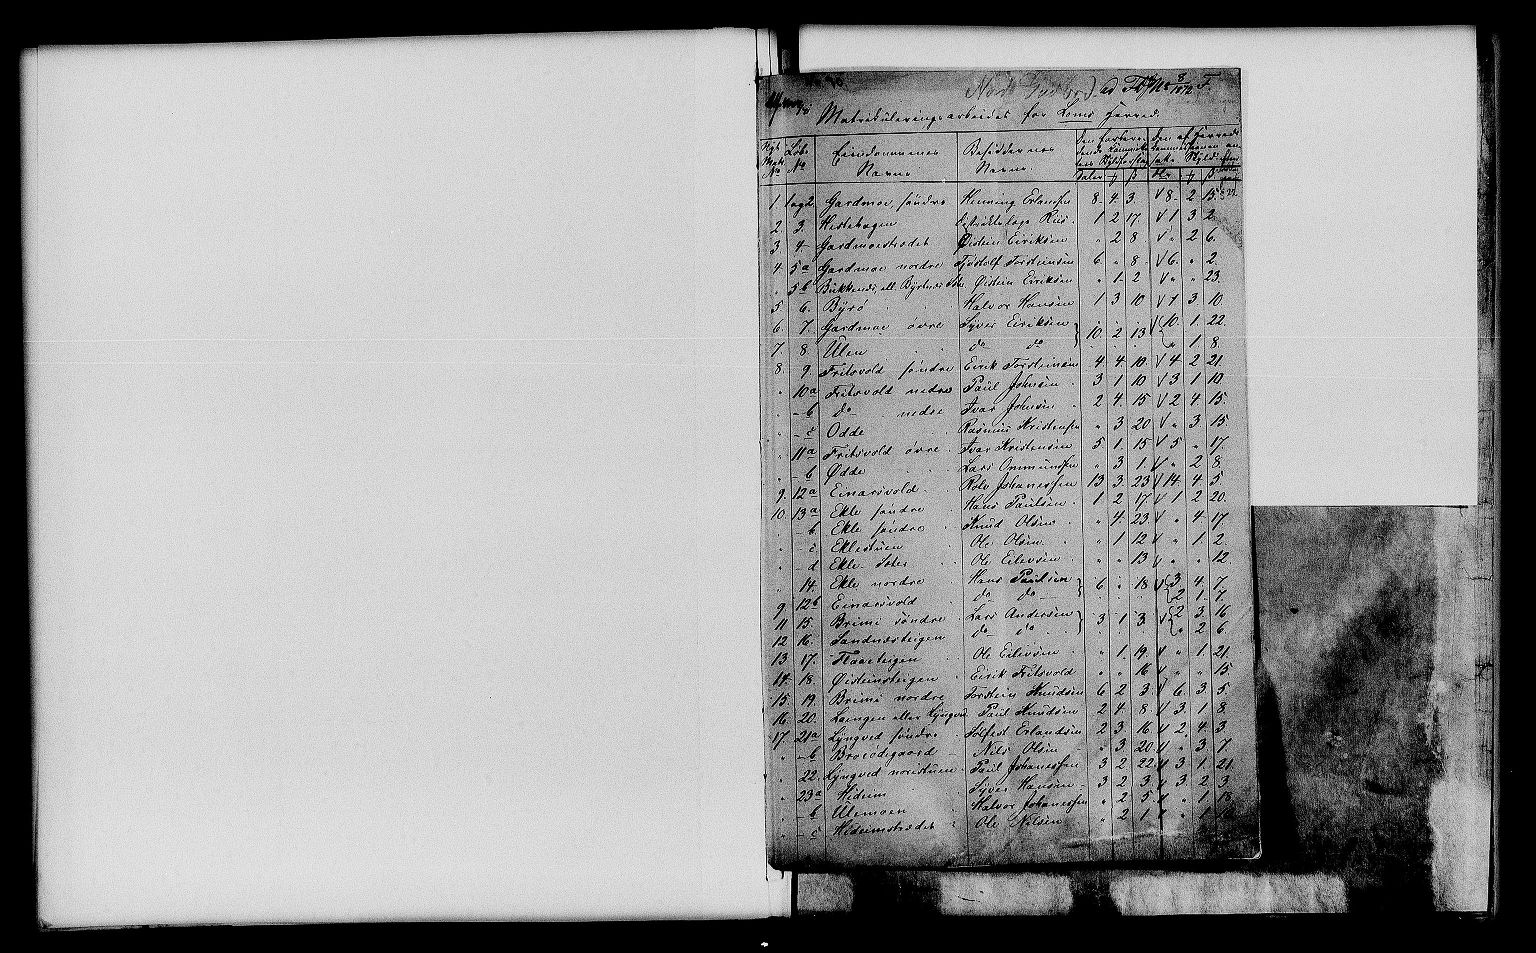 ad 8/1872 F.
Matrikuleringsarbeidet for Loms Herred.
No Løbe No Eiendommenes Navne Besiddernes Navne Daler ß
1. 1og2. Gardmoe, søndre Henning Erlandsen 8. 4. 3. 8. 2 15.
2 3. Hestehagen Rus. 1 2 17. 1 3 2
3 4 Gardmoestrædet Øistein Eiriksen " 2 8 " 2 6.
4. 5a Gardmoe nordre Tjøstolf Torsteinsen 6 " 8. 6. " 2.
" 5b Bukkenæs, ell. Øistein Eiriksen " 1 2 " " 23.
5. 6. Byrø Halvor Hansen 1 3 10 1 3 10.
6 7. Gardmoe øvre Syver Eiriksen 10. 2 13 10. 1. 22.
7. 8. Ulen do do " 1 8.
8. 9. Fritsvold søndre Eirik Torsteinsen 4 4. 10. 4 2 21
" 10a Fritsvold nedre Paul Johnsen 3 1 10 3 1 10.
" - b do nedre Ivar Johnsen 2 4. 15 2 4. 15.
" - c Odde Rasmus Kristensen " 3 20 " 3 15
" 11a Fritsvold øvre Ivar Kristensen 5 1. 15 5 " 17.
" - b Odde Lars Ommundsen " 3 1. " 2 8.
9. 12a Einarsvold Rolv Johannessen 13 3. 23 14. 4 5.
10. 13a Ekle søndre Hans Paulsen 1 2 17 1 2 20.
" - b Ekle søndre Knud Olsen " 4. 23 " 4 17
" - c Eklestuen Ole Olsen " 1 12 " 1 2.
" - d Ekle- Ole Eilevsen " " 13 " " 12
" 14. Ekle nordre Hans Paulsen 6 " 18 3 4. 7.
9. 12b Einarsvold do do 2 1. 7.
11 15. Brimi søndre Lars Andersen 3 1 3. 2 3. 16
12 16. Sandnæsteigen do do " 2 6.
13 17. Flaateigen Ole Eilevsen " 1. 19. " 1 21.
14. 18. Øisteinsteigen Eirik Fritsvold " " 16 " " 15.
15. 19. Brimi nordre Torstein Knudsen 6 2 3 6. 3 5.
16. 20. Loengen eller Lyngved Paul Knudsen 2 4. 8. 3. 1 8.
17 21a Lyngved søndre Erlandsen 2 3 16 2. 4. 3.
" - b Nils Olsen " 3 20 " 3 7.
" 22. Lyngved noristuen Paul Johannessen 3 2 22. 3 1. 21
" 23a Hideim Syver Hansen 3 2 3. 3 2 3.
" - b Ulemoen Halvor Johannessen " 2 5 " 1 18.
" - c Hideimstrædet Ole Nilsen " 2 1 " 1